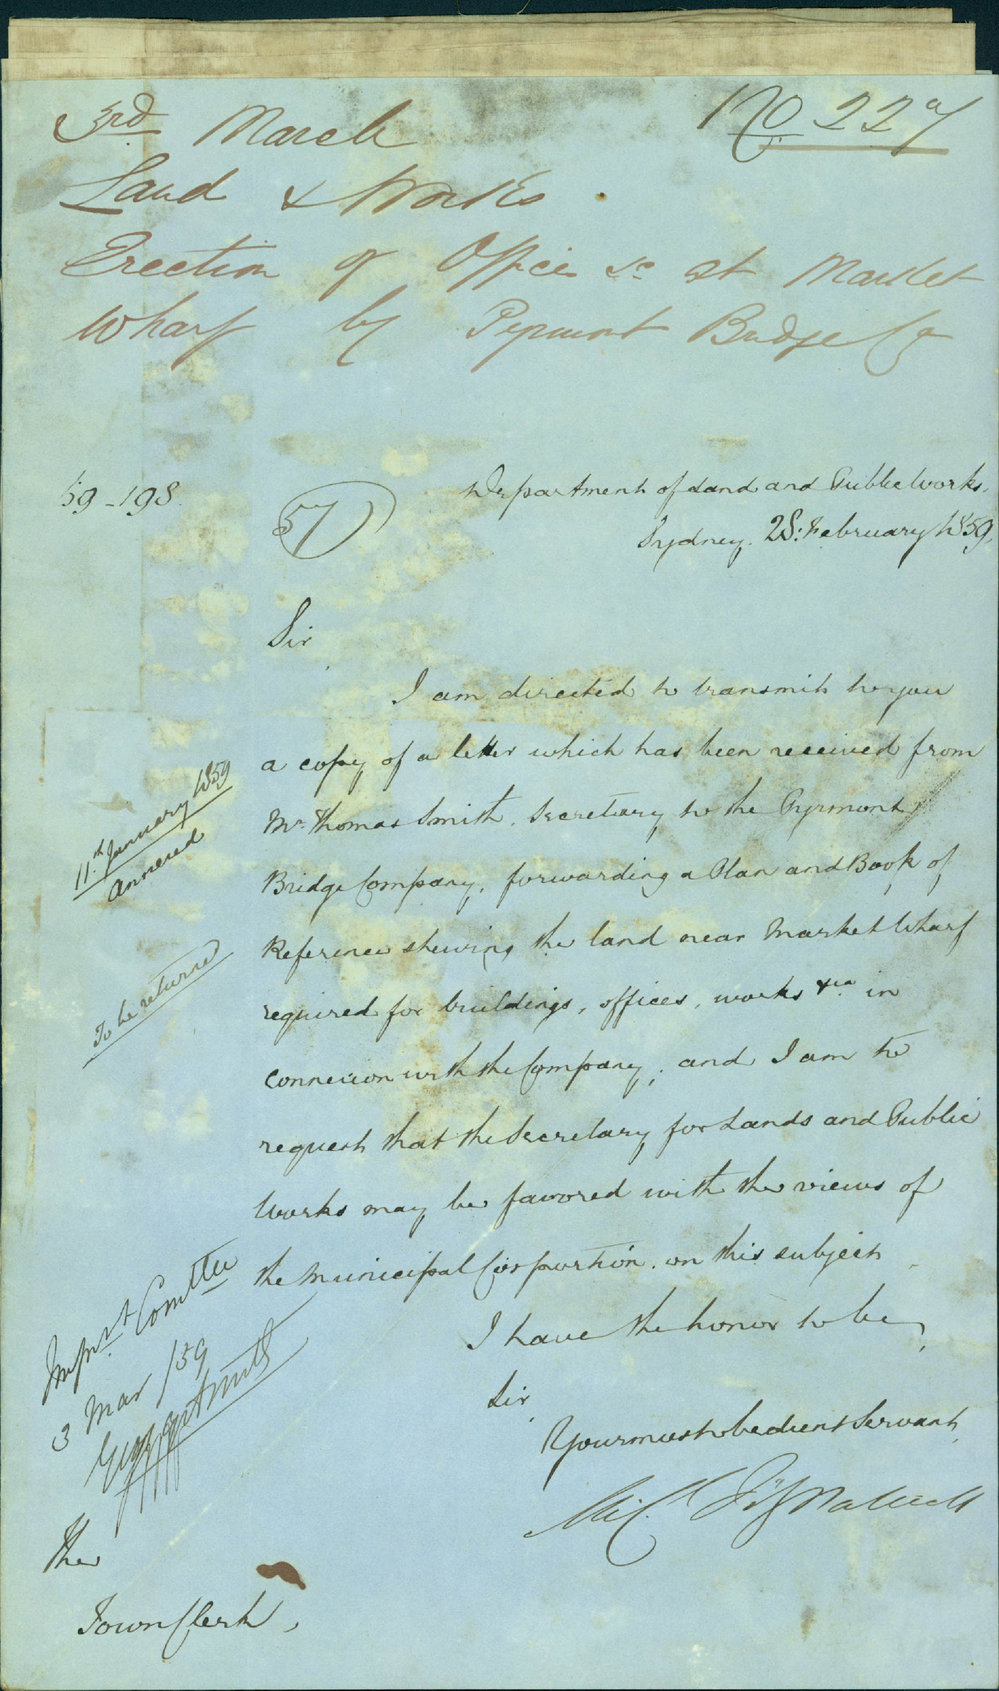 3rd March
No 227
Land & Works.
Erection of Offices &c at Market
Wharf by Pyrmont Bridge Co
59-198
57
Department of Land and Public Works.
Sydney. 28: February 1859.
Sir
I am directed to transmit to you
a copy of a letter which has been received from
11th January 1859
Annexed
Mr Thomas Smith, Secretary to the Pyrmont
Bridge Company, forwarding a Plan and Book of
Reference shewing the land near Market Wharf
To be returned
required for buildings, offices, works &ca in
connexion with the Company; and I am to
request that the Secretary for Lands and Public
Works may be favored with the views of
the Municipal Corporation, on this subject
I have the honor to be,
Sir
Your most obedient Servant
Mich Fitzpatrick
Impt Comttee
3 Mar /59
The
Town Clerk,